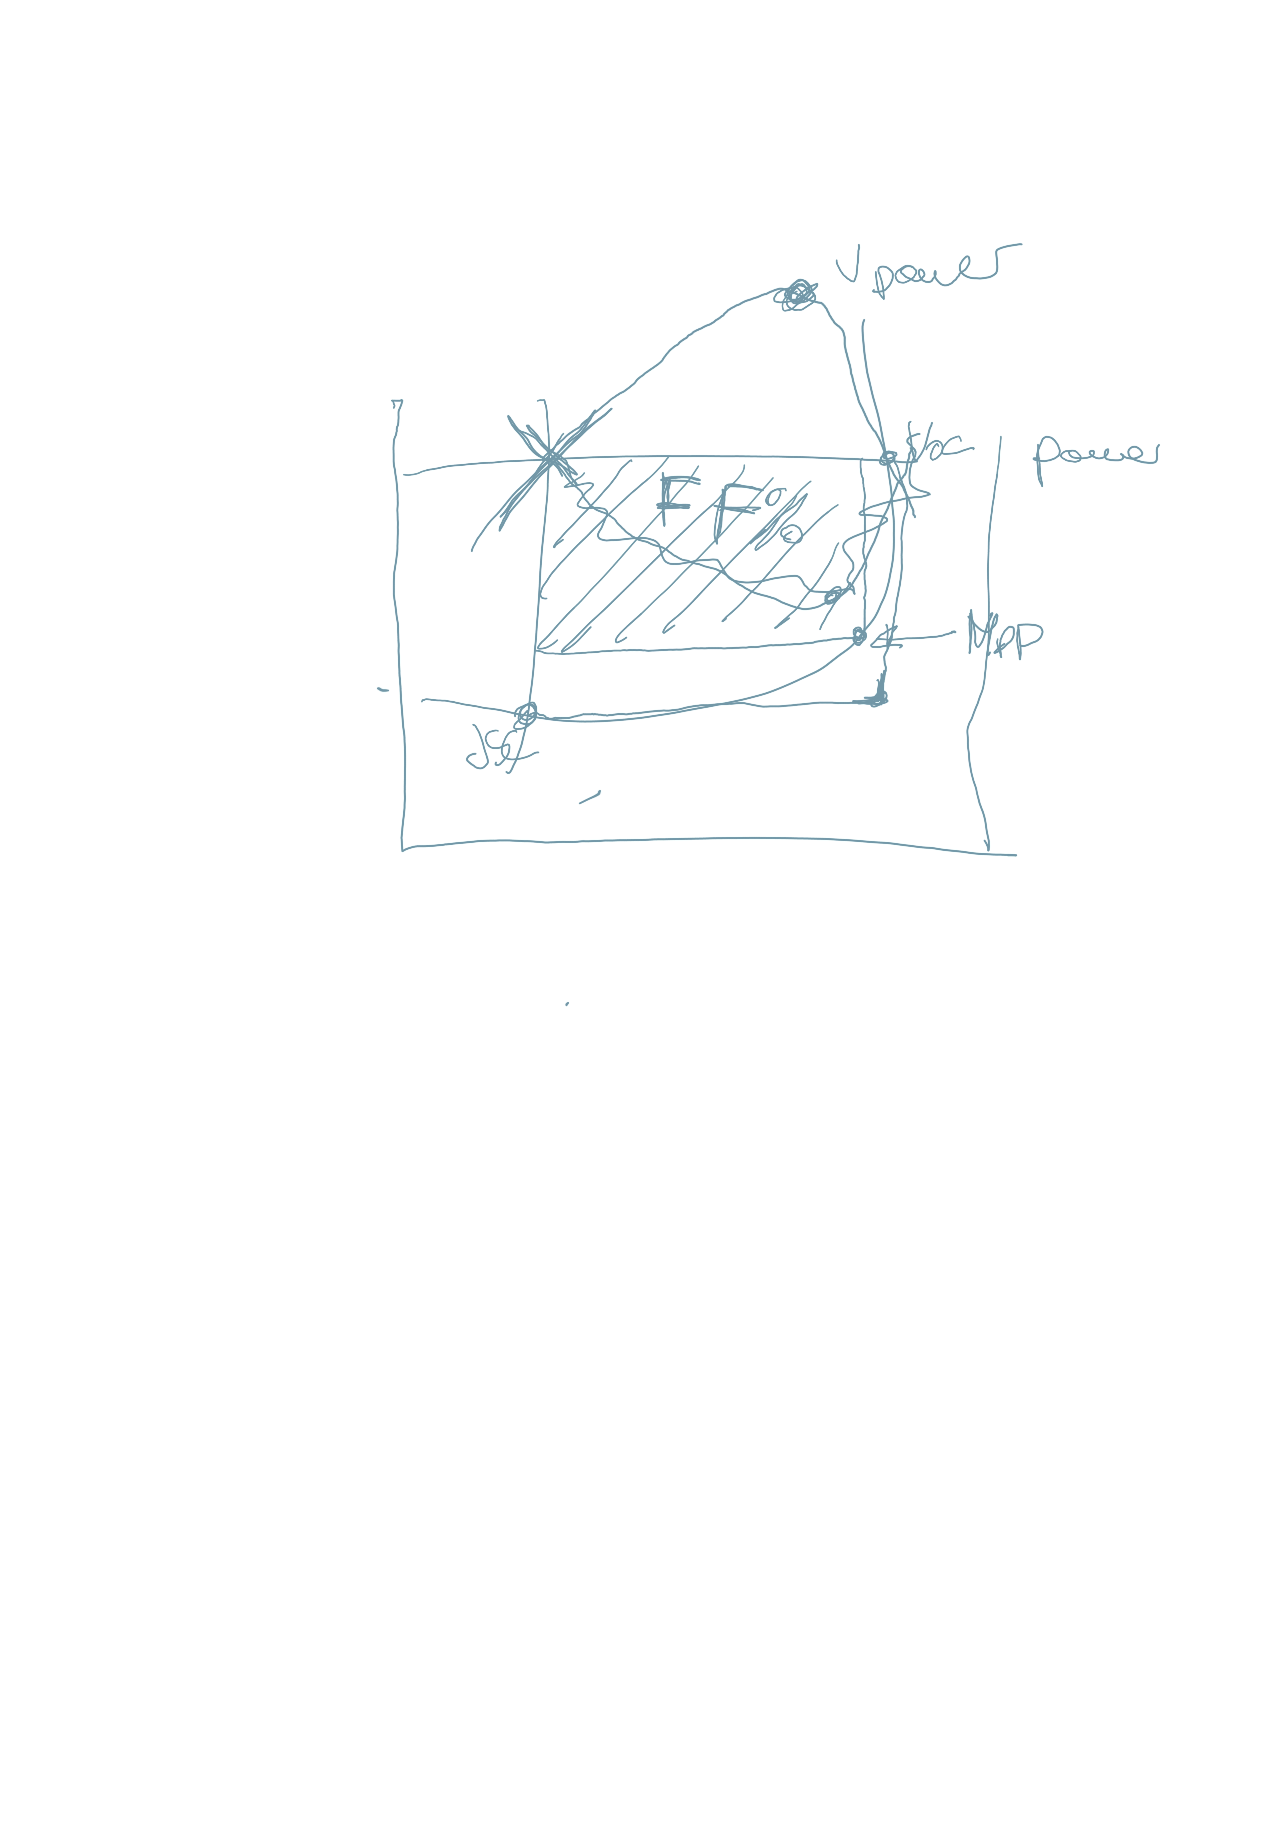 V power
Voc
power
FF%
MPP
Jsc